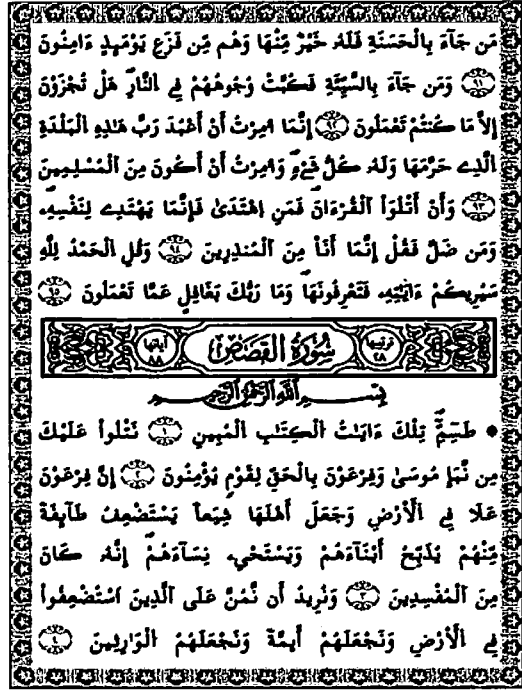 مَن جَآءَ بِالْحَسَنَةِ فَلَهُۥ خَيْرٌ مِّنْهَا وَهُم مِّن فَزَعِ يَوْمَئِذٍ ءَامِنُونَ
٩١ وَمَن جَآءَ بِالسَّيِّئَةِ فَكُبَّتْ وُجُوهُهُمْ فِے النّ۪ارِ هَلْ تُجْزَوْنَ
إِلَّا مَا كُنتُمْ تَعْمَلُونَ ٩٢ إِنَّمَآ أُمِرْتُ أَنْ أَعْبُدَ رَبَّ هَٰذِهِ الْبَلْدَةِ
الَّذِے حَرَّمَهَا وَلَهُۥ كُلُّ شَےْءٍ وَأُمِرْتُ أَنْ أَكُونَ مِنَ الْمُسْلِمِينَ
٩٣ وَأَنْ أَتْلُوَاْ اَلْقُرْءَانَ فَمَنِ اِهْتَدَىٰ فَإِنَّمَا يَهْتَدِے لِنَفْسِهِۦ
وَمَن ضَلَّ فَقُلْ إِنَّمَآ أَنَا۠ مِنَ اَلْمُنذِرِينَ ٩٤ وَقُلِ اِلْحَمْدُ لِلهِ
سَيُرِيكُمْ ءَايَٰتِهِۦ فَتَعْرِفُونَهَا وَمَا رَبُّكَ بِغَٰفِلٍ عَمَّا تَعْمَلُونَ ٩٥
ترتيبها ٢٨ سُورَةُ القَصَصِ آياتها ٨٨
بِسْمِ اللهِ الرَّحْمٰنِ الرَّحِيمِ
طَسِٓمِّٓ تِلْكَ ءَايَٰتُ اُلْكِتَٰبِ اِلْمُبِينِ ١ نَتْلُواْ عَلَيْكَ
مِن نَّبَإِ مُوسَىٰ وَفِرْعَوْنَ بِالْحَقِّ لِقَوْمٍ يُؤْمِنُونَ ٢ إِنَّ فِرْعَوْنَ
عَلَا فِے اِلْأَرْضِ وَجَعَلَ أَهْلَهَا شِيَعاً يَسْتَضْعِفُ طَآئِفَةً
مِّنْهُمْ يُذَبِّحُ أَبْنَآءَهُمْ وَيَسْتَحْيِۦ نِسَآءَهُمْ إِنَّهُۥ كَانَ
مِنَ اَلْمُفْسِدِينَ ٣ وَنُرِيدُ أَن نَّمُنَّ عَلَى الَّذِينَ اَسْتُضْعِفُواْ
فِے اِلْأَرْضِ وَنَجْعَلَهُمْ أَئِمَّةً وَنَجْعَلَهُمُ اُلْوَٰرِثِينَ ٤